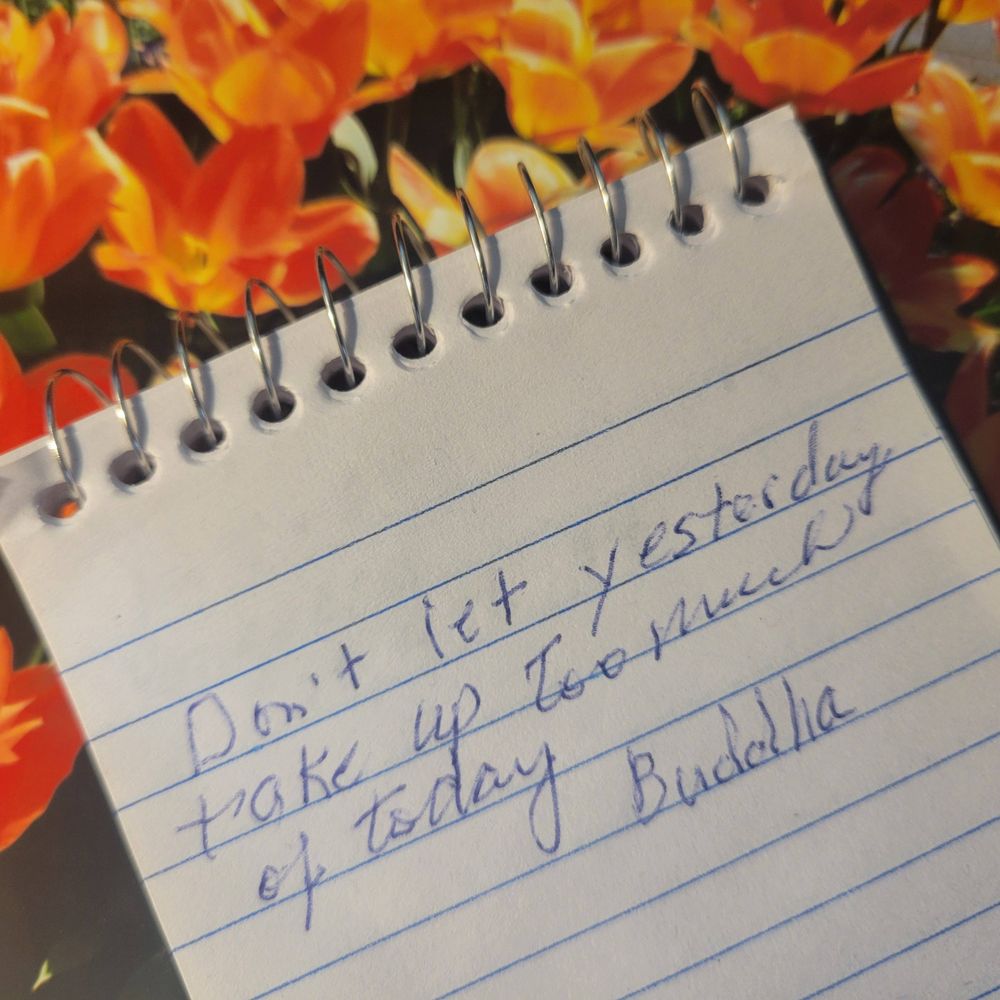 Don't let yesterday
take up Too much
of today Buddha